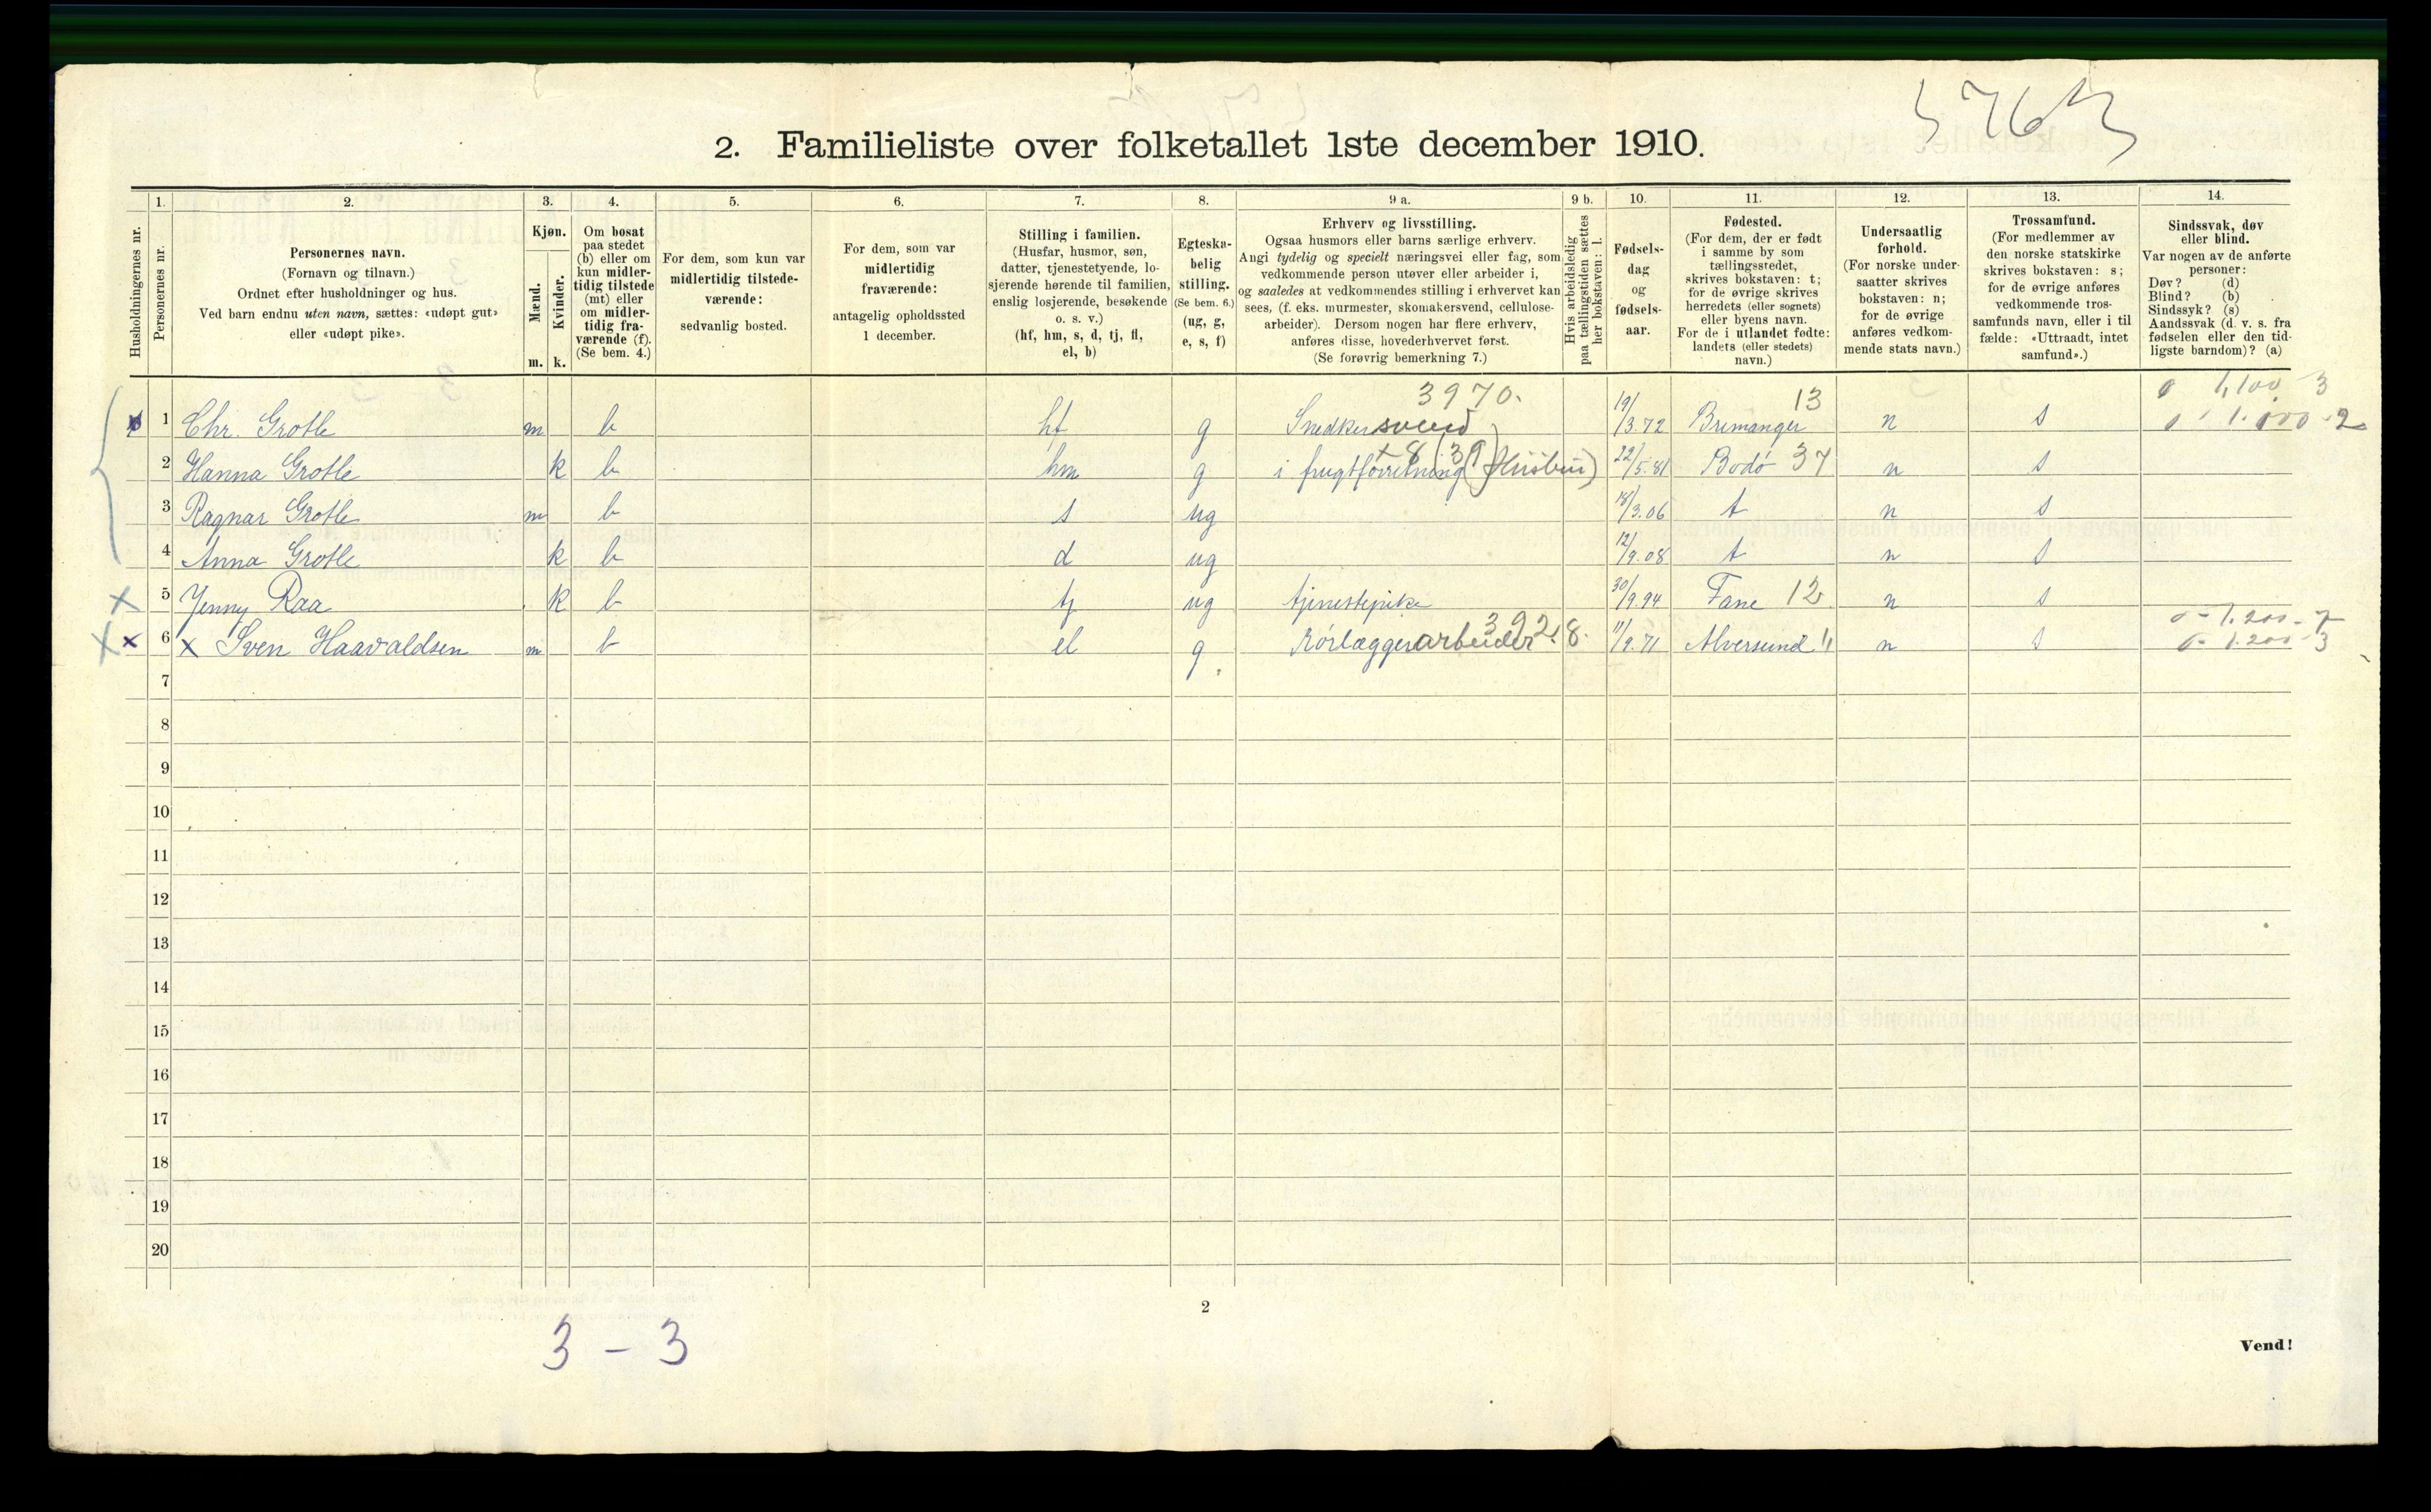 5763
2. Familieliste over folketallet 1ste december 1910.
Husholdningernes nr.
1. Personernes nr.
2. Personernes navn.
(Fornavn og tilnavn.)
Ordnet efter husholdninger og hus.
Ved barn endnu uten navn, sættes: «udøpt gut»
eller «udøpt pike».
3. Kjøn.
Mænd. m.
Kvinder. k.
4. Om bosat
paa stedet
(b) eller om
kun midler-
tidig tilstede
(mt) eller
om midler-
tidig fra-
værende (f).
(Se bem. 4.)
5. For dem, som kun var
midlertidig tilstede-
værende:
sedvanlig bosted.
6. For dem, som var
midlertidig
fraværende:
antagelig opholdssted
1 december.
7. Stilling i familien.
(Husfar, husmor, søn,
datter, tjenestetyende, lo-
sjerende hørende til familien,
enslig losjerende, besøkende
o. s. v.)
(hf, hm, s, d, tj, fl,
el, b)
8. Egteska-
belig
stilling.
(Se bem. 6.)
(ug, g,
e, s, f)
9 a. Erhverv og livsstilling.
Ogsaa husmors eller barns særlige erhverv.
Angi tydelig og specielt næringsvei eller fag, som
vedkommende person utøver eller arbeider i,
og saaledes at vedkommendes stilling i erhvervet kan
sees, (f. eks. murmester, skomakersvend, cellulose-
arbeider). Dersom nogen har flere erhverv,
anføres disse, hovederhvervet først.
(Se forøvrig bemerkning 7.)
9 b. Hvis arbeidsledig
paa tællingstiden sættes
her bokstaven: l.
10. Fødsels-
dag
og
fødsels-
aar.
11. Fødested.
(For dem, der er født
i samme by som
tællingsstedet,
skrives bokstaven: t;
for de øvrige skrives
herredets (eller sognets)
eller byens navn.
For de i utlandet fødte:
landets (eller stedets)
navn.)
12. Undersaatlig
forhold.
(For norske under-
saatter skrives
bokstaven: n;
for de øvrige
anføres vedkom-
mende stats navn.)
13. Trossamfund.
(For medlemmer av
den norske statskirke
skrives bokstaven: s;
for de øvrige anføres
vedkommende tros-
samfunds navn, eller i til
fælde: «Uttraadt, intet
samfund».)
14. Sindssvak, døv
eller blind.
Var nogen av de anførte
personer:
Døv? (d)
Blind? (b)
Sindssyk? (s)
Aandssvak (d. v. s. fra
fødselen eller den tid-
ligste barndom)? (a)
3970. 13 1,100 3
1 Chr. Grotle m b hf g Snedkersvend 19/3.72 Bremanger n s 1.000 2
2 Hanna Grotle k b hm g i frugtforretning (Husbru) 22/5.81 Bodø 37 n s
3 Ragnar Grotle m b s ug 18/3.06 t n s
4 Anna Grotle k b d ug 12/9.08 t n s
5 Jenny Raa k b tj ug tjenestepike 30/9.94 Fane 12 n s
392.8. 1.200 - 7
6 x Sven Haavaldsen m b el g Rørlæggerarbeider 11/9.71 Alversund 11 n s 1.200 3
7
8
9
10
11
12
13
14
15
16
17
18
19
20
2
3 - 3
Vend!